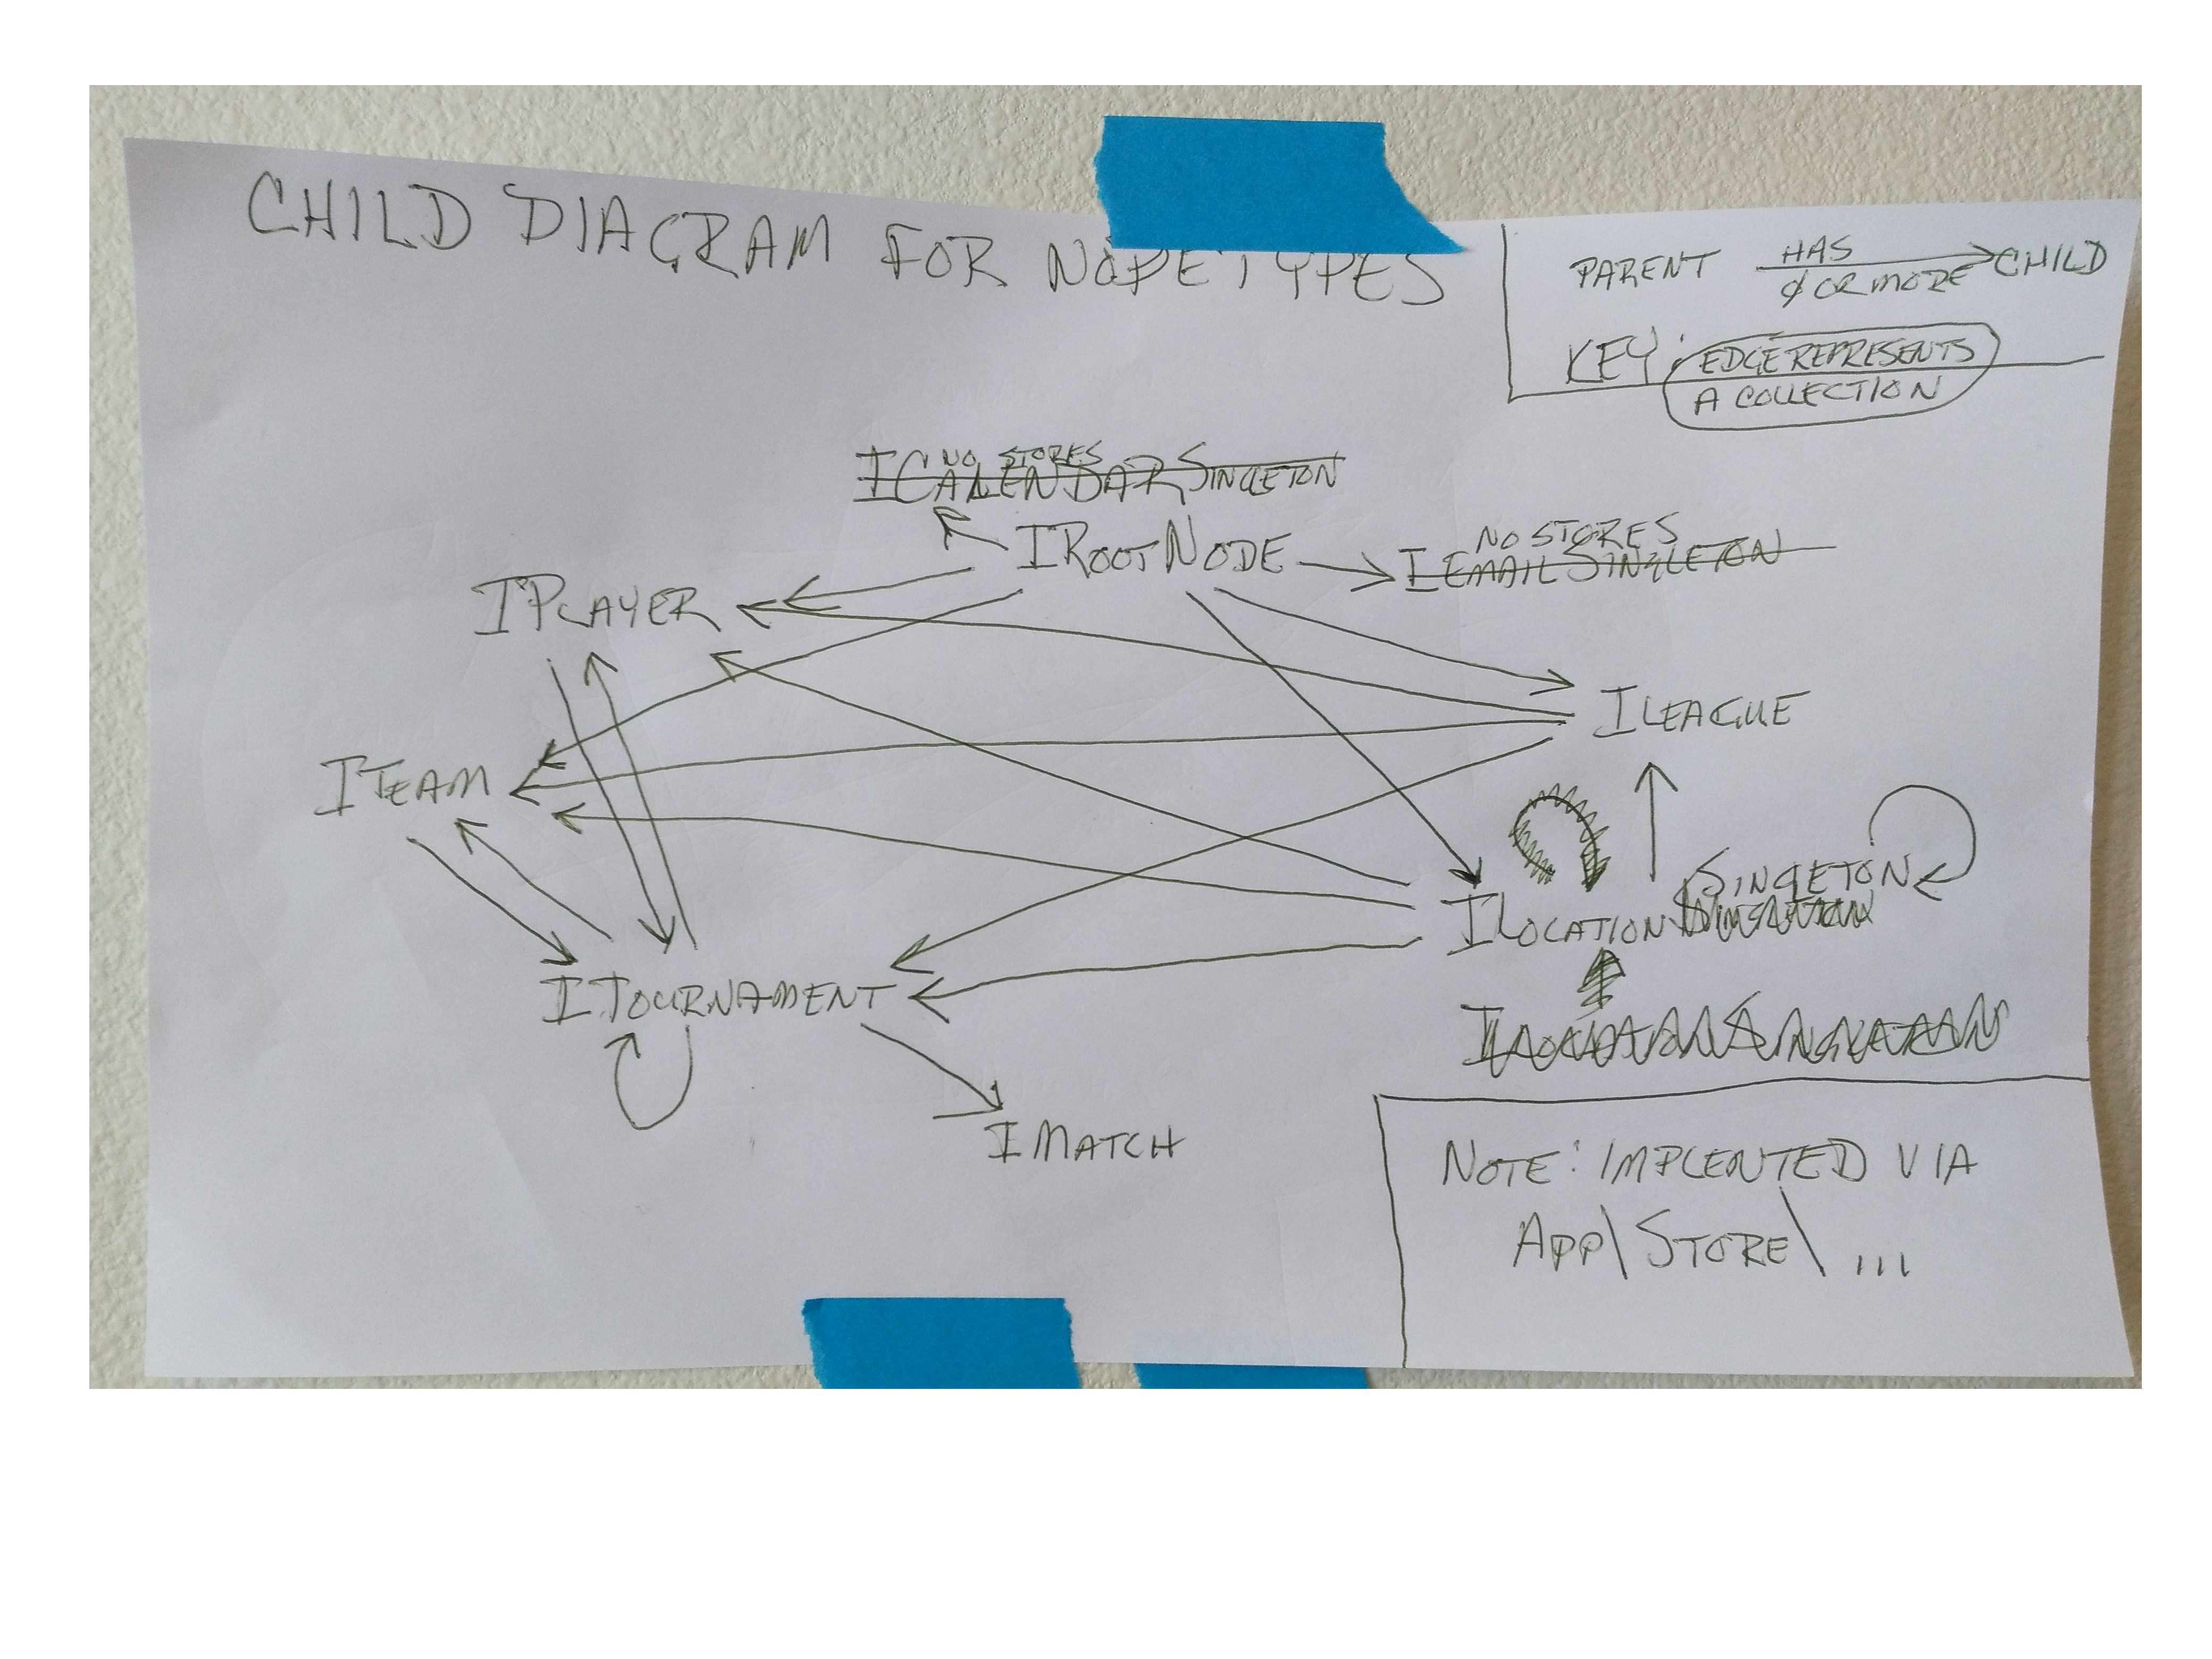 CHILD DIAGRAM FOR NODETYPES
PARENT HAS CHILD
Ø OR MORE
KEY: EDGE REPRESENTS
A COLLECTION
NO STORES
ICALENDARSINGLETON
IROOTNODE
NO STORES
IEMAILSINGLETON
IPLAYER
ILEAGUE
ITEAM
SINGLETON
ILOCATION
ITOURNAMENT
IMATCH
NOTE: IMPLENTED VIA
APP\STORE\...